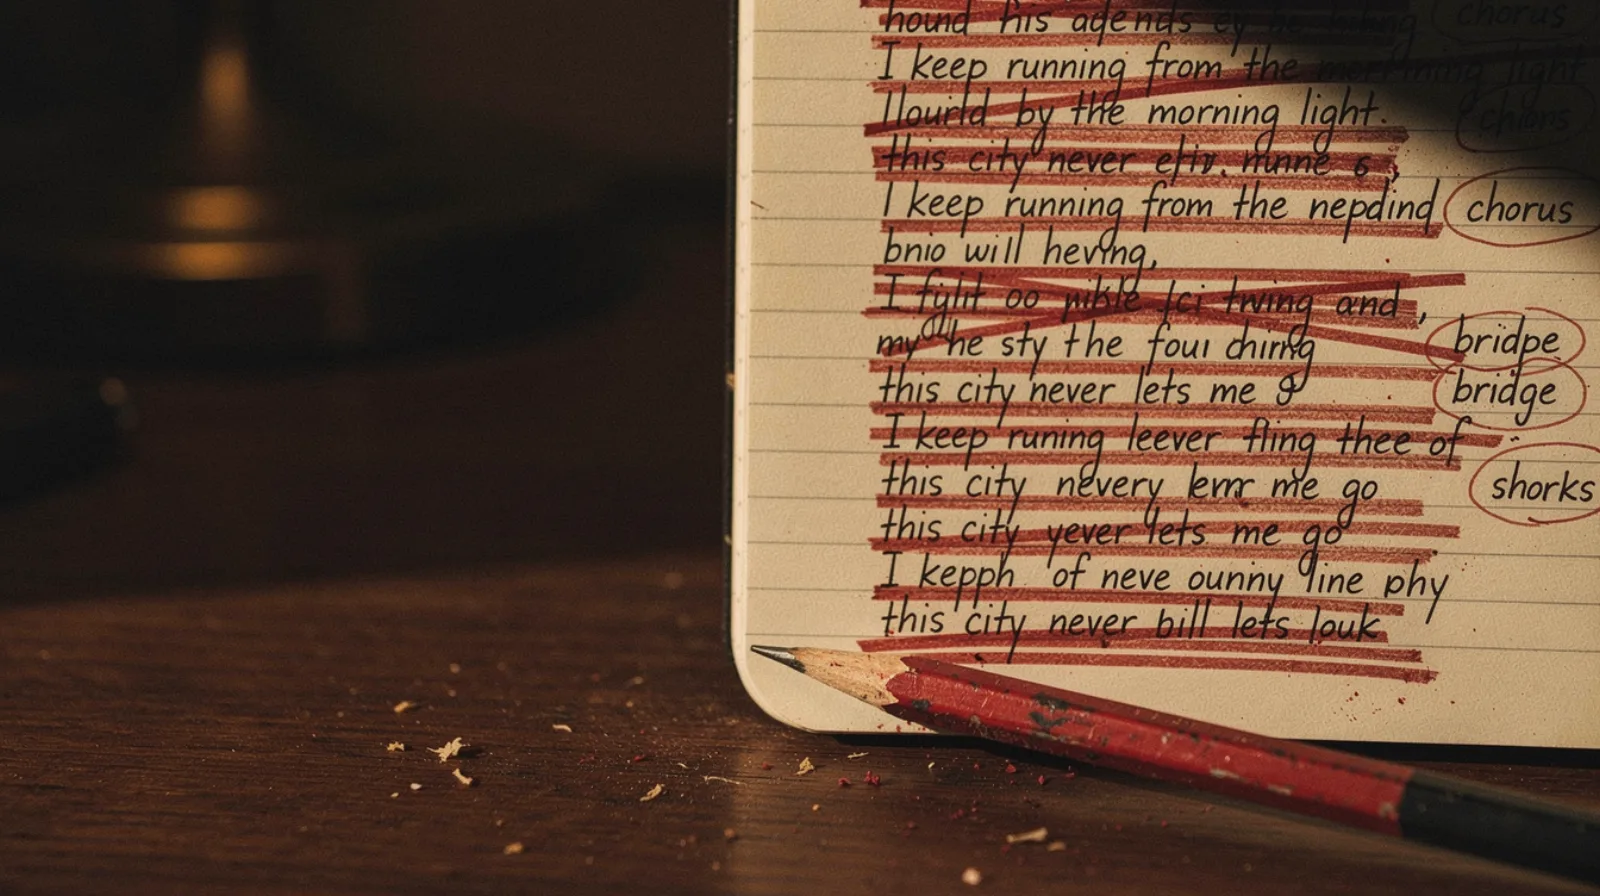 hound his adends ey he
chorus
I keep running from the morrmning light
llourld by the morning light.
chions
this city never efiv. hunne s,
I keep running from the nepdind
chorus
bnio will heving,
I fylit oo pikle fci twing and,
my he sty the foui chirng
bridpe
this city never lets me g
bridge
I keep runing leever fling thee of
this city nevery lemr me go
shorks
this city yever lets me go
I kepph of neve ounny line phy
this city never bill lets louk